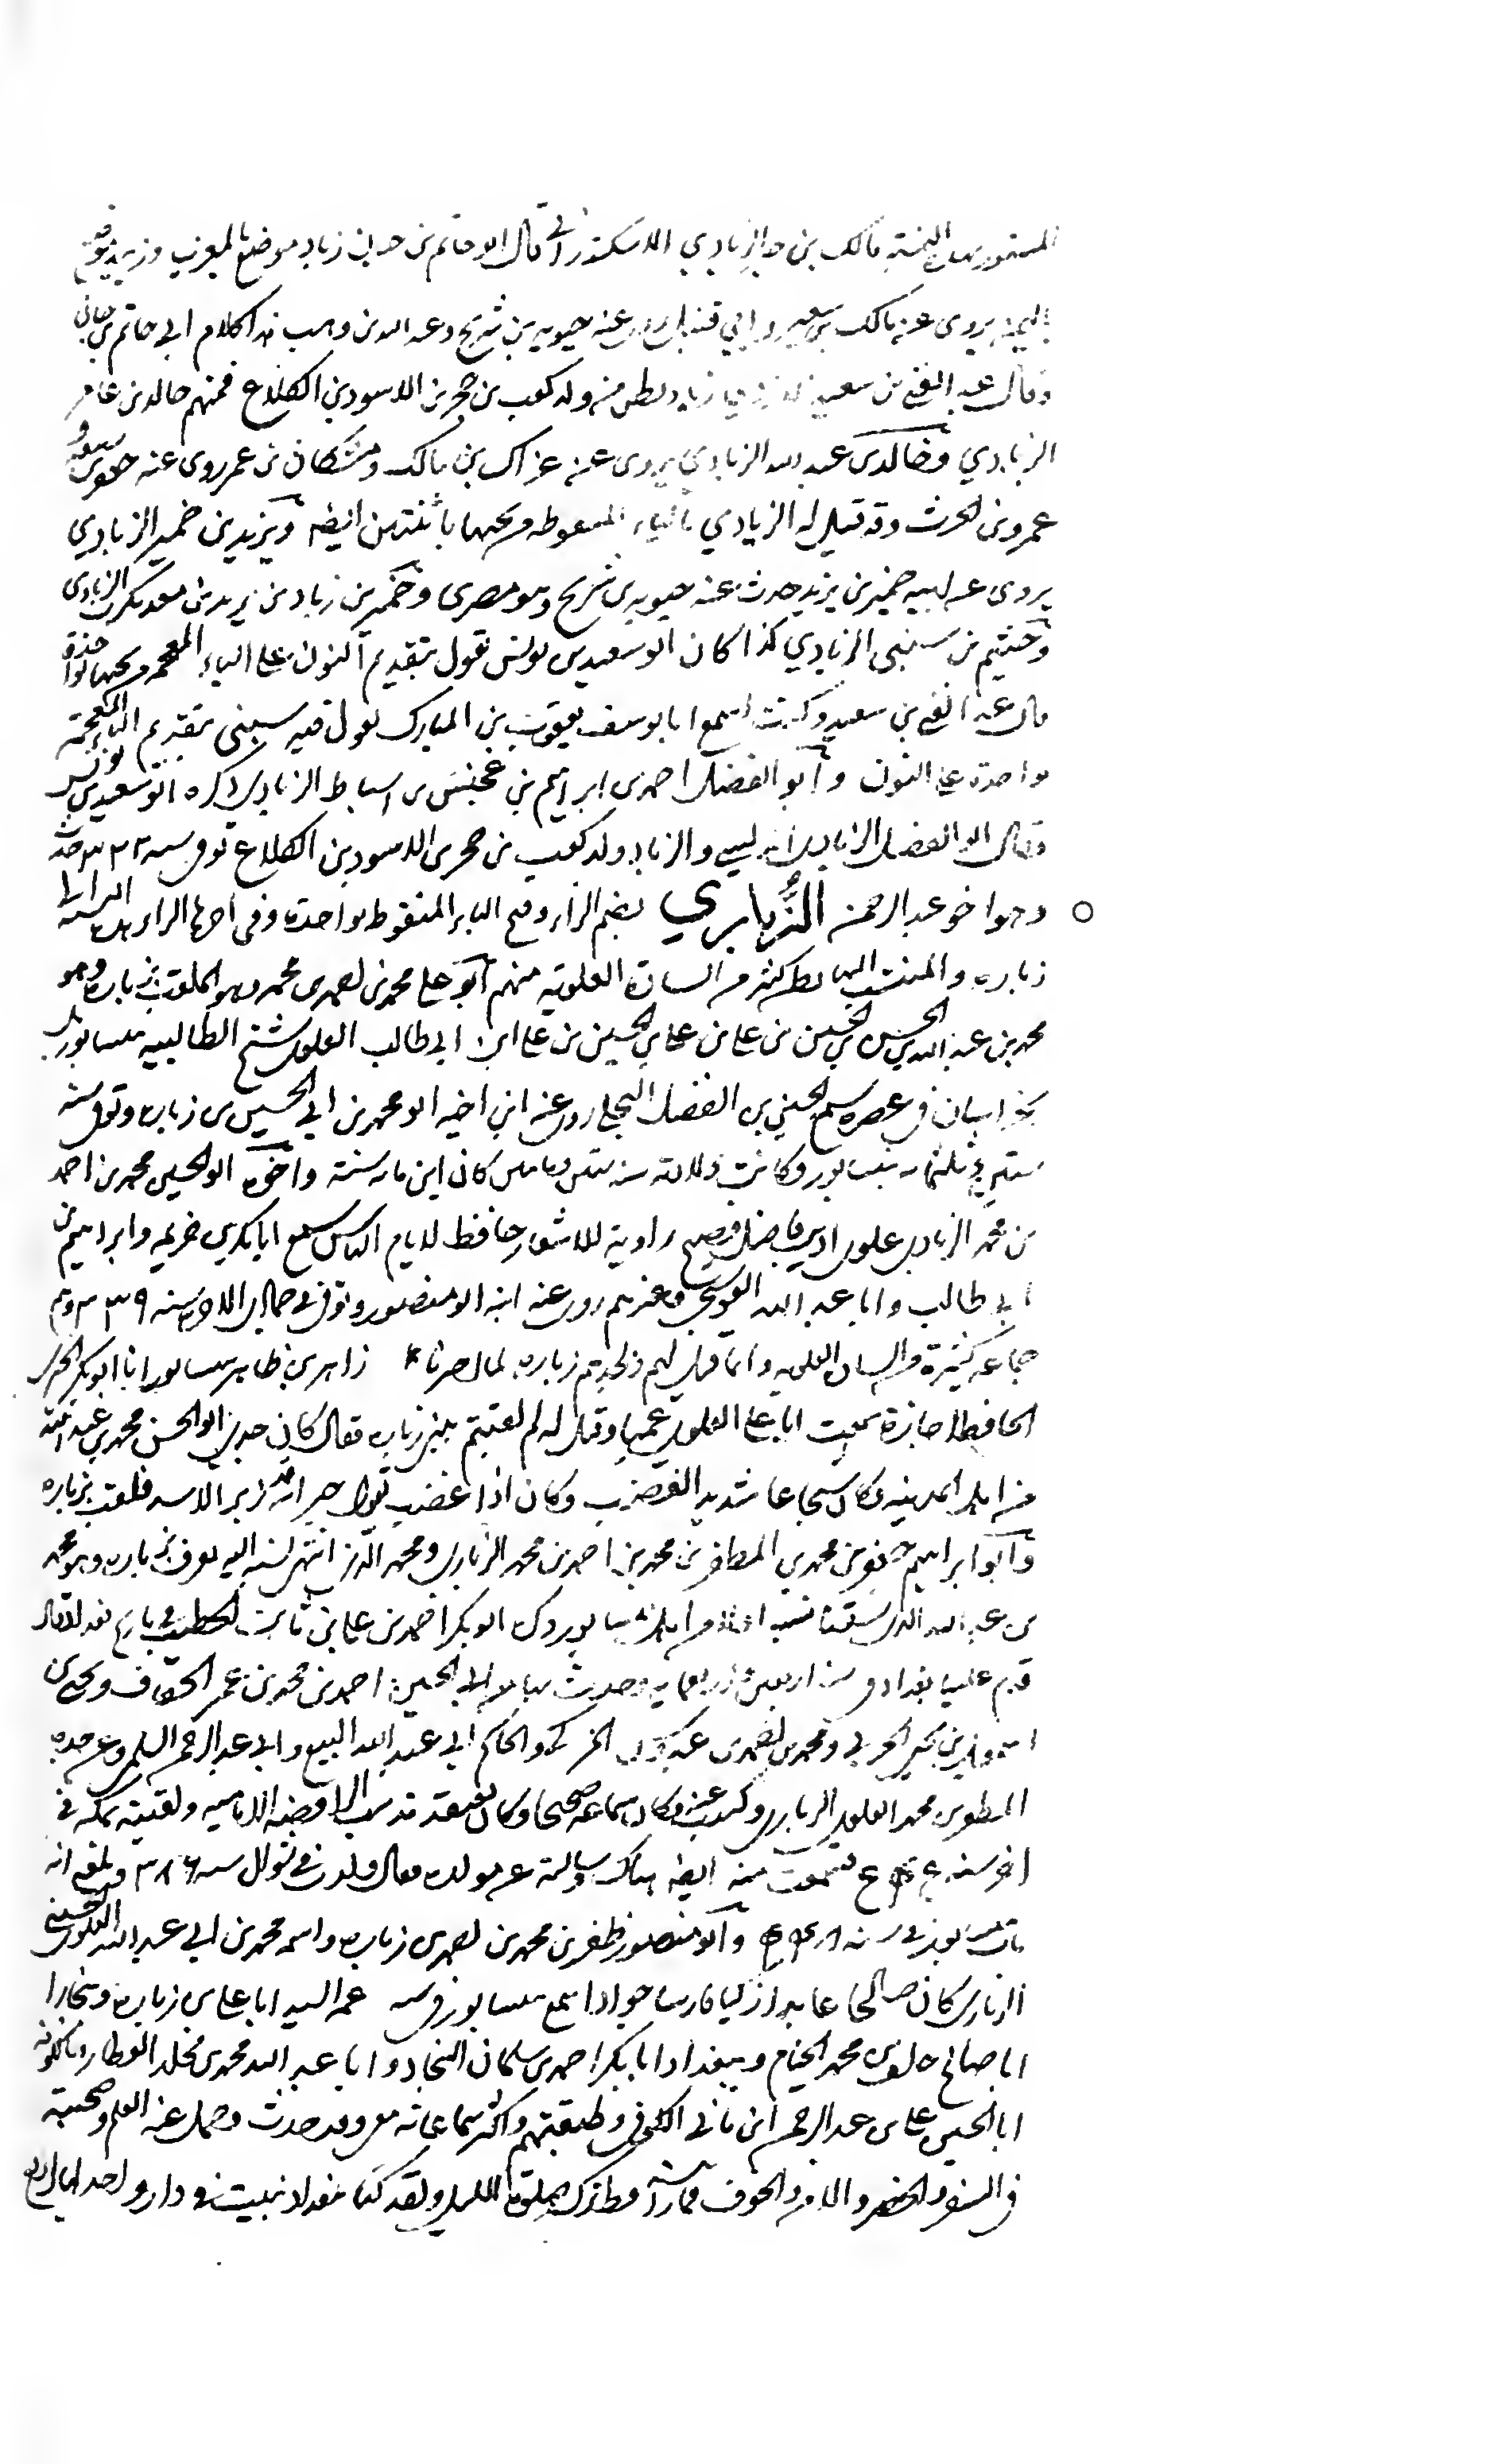 مالك بن خير الزبادي الاسكندراني قال ابو حاتم بن حبان زباد موضع بالمغرب وزبيد موضع
باليمن يروى عن مالك بن سعد وابي قبيل روى عنه حيوة بن شريح وعبد الله بن وهب هذا كلام ابي حاتم بن حبان
وقال عبد الغني بن سعيد زباد بطن من ولد كعب بن حجر بن الاسود بن الكلاع فمنهم خالد بن عامر
الزبادي وخالد بن عبد الله الزبادي يروى عن عراك بن مالك ومشكان بن عمر روى عنه جعفر بن ربيعة و
عمرو بن الحرث وقد قيل له الزيادي بالياء المنقوطه من تحتها باثنتين ايضا ويزيد بن خمير الزبادي
يروى عن ابيه خمير بن يزيد حدث عنه حيوه بن شريح وهو مصرى وخمير بن زياد بن يزيد بن معدىكرب الزبادى
وخثيم بن سنبتى الزبادي كذا كان ابو سعيد بن يونس يقول بتقديم النون على الباء المعجمة من تحتها بواحدة
قال عبد الغني بن سعيد وكنت اسمع ابا يوسف يعقوب بن المبارك يقول فيه سبنتى بتقديم الباء المعجمة
بواحدة على النون وابو الفضل احمد بن ابراهيم بن عجنس بن اسباط الزبادي ذكره ابو سعيد بن يونس
وقال ابو الفضل الزبادى اندلسي والزباد ولد كعب بن حجر بن الاسود بن الكلاع توفى سنه ٣٢٢ حدث
وهو اخو عبد الرحمن الزُّبارِي بضم الزاء وفتح الباء المنقوطة بواحدة وفى اخرها الراء هذه النسبة الى
زباره والمنتسب اليها بطن كثير من السادة العلوية منهم ابو على محمد بن احمد بن محمد وهو الملقب بزباره وهو
محمد بن عبد الله بن الحسن بن الحسين بن على بن على بن الحسين بن على ابن ابى طالب العلوى شيخ الطالبيه بنيسابور بل
بخراسان فى عصره سمع الحسين بن الفضل البجلي روى عنه ابن اخيه ابو محمد بن ابي الحسين بن زباره وتوفى سنة
ستين وثلثمائة بنيسابور وكانت ولادته سنه ستين ومائتين كان ابن مائة سنة واخوه ابو الحسين محمد بن احمد
بن محمد الزبارى علوى اديب فاضل فصيح راوية للاشعار حافظ لايام الناس سمع ابا بكر بن خزيمه وابراهيم بن
ابى طالب وابا عبد الله البوشنجي وغيرهم روى عنه ابنه ابو منصور وتوفى فى جمادى الاخره سنه ٣٣٩ وهم
جماعة كثيرة من السادة العلويه وانما قيل لهم ذلك لجدهم زباره لما اخبرنا زاهر بن طاهر بنيسابور انا ابو بكر الحيرى
الحافظ اجازة سمعت ابا على العلوى عمها وقيل له لم لقبتم ببنى زباره فقال كان جدى ابو الحسن محمد بن عبد الله
من اهل المدينه وكان شجاعا شديد الغضب وكان اذا غضب يقول جيرانه قد زبر الاسد فلقب بزباره
وابو ابراهيم جعفر بن محمد بن المظفر بن محمد بن احمد بن محمد الزبارى ومحمد الذى انتهى نسبه اليه يعرف بزباره وهو محمد
بن عبد الله الذى سقنا نسبه اولا من اهل نيسابور ذكره ابو بكر احمد بن على بن ثابت الخطيب فى تاريخ بغداد وقال
قدم علينا بغداد فى سنه اربعين واربعمايه وحدث بها عن ابى الحسين احمد بن محمد بن عمر الخفاف ويحيى بن
اسمعيل بن يحيى الحربي ومحمد بن احمد بن عبدوس المزكى والحاكم ابى عبد الله البيع وابى عبد الرحمن السلمى وعن جده
المظفر بن محمد العلوى الزبارى وكتبت عنه وكان سماعه صحيحا وكان يعتقد مذهب الرافضه الاماميه ولقيته بمكه فى
اخر سنه فسمعت منه ايضا هناك وسالته عن مولده فقال ولدت فى شوال سنه ٣٨٦ وبلغني انه
مات بنيسابور فى سنه وابو منصور ظفر بن محمد بن احمد بن زباره واسمه محمد بن ابى عبد الله العلوى الحسينى
الزبارى كان صالحا عابدا زكيا فارسا جوادا سمع بنيسابور عمه السيد ابا على بن زباره وبخارا
ابا صالح خلف بن محمد الخيام وببغداد ابا بكر احمد بن سلمان النجاد وابا عبد الله محمد بن مخلد العطار وبالكوفه
ابا الحسين على بن عبد الرحمن ابن ماتى الكوفى وطبقتهم واكثر سماعاته معى وقد حدث وحمل عنه العلم وصحبته
فى السفر والحضر والامن والخوف فما رايته قط ترك صلوة الليل ولقد كنا ببغداد نبيت فى دار واحد